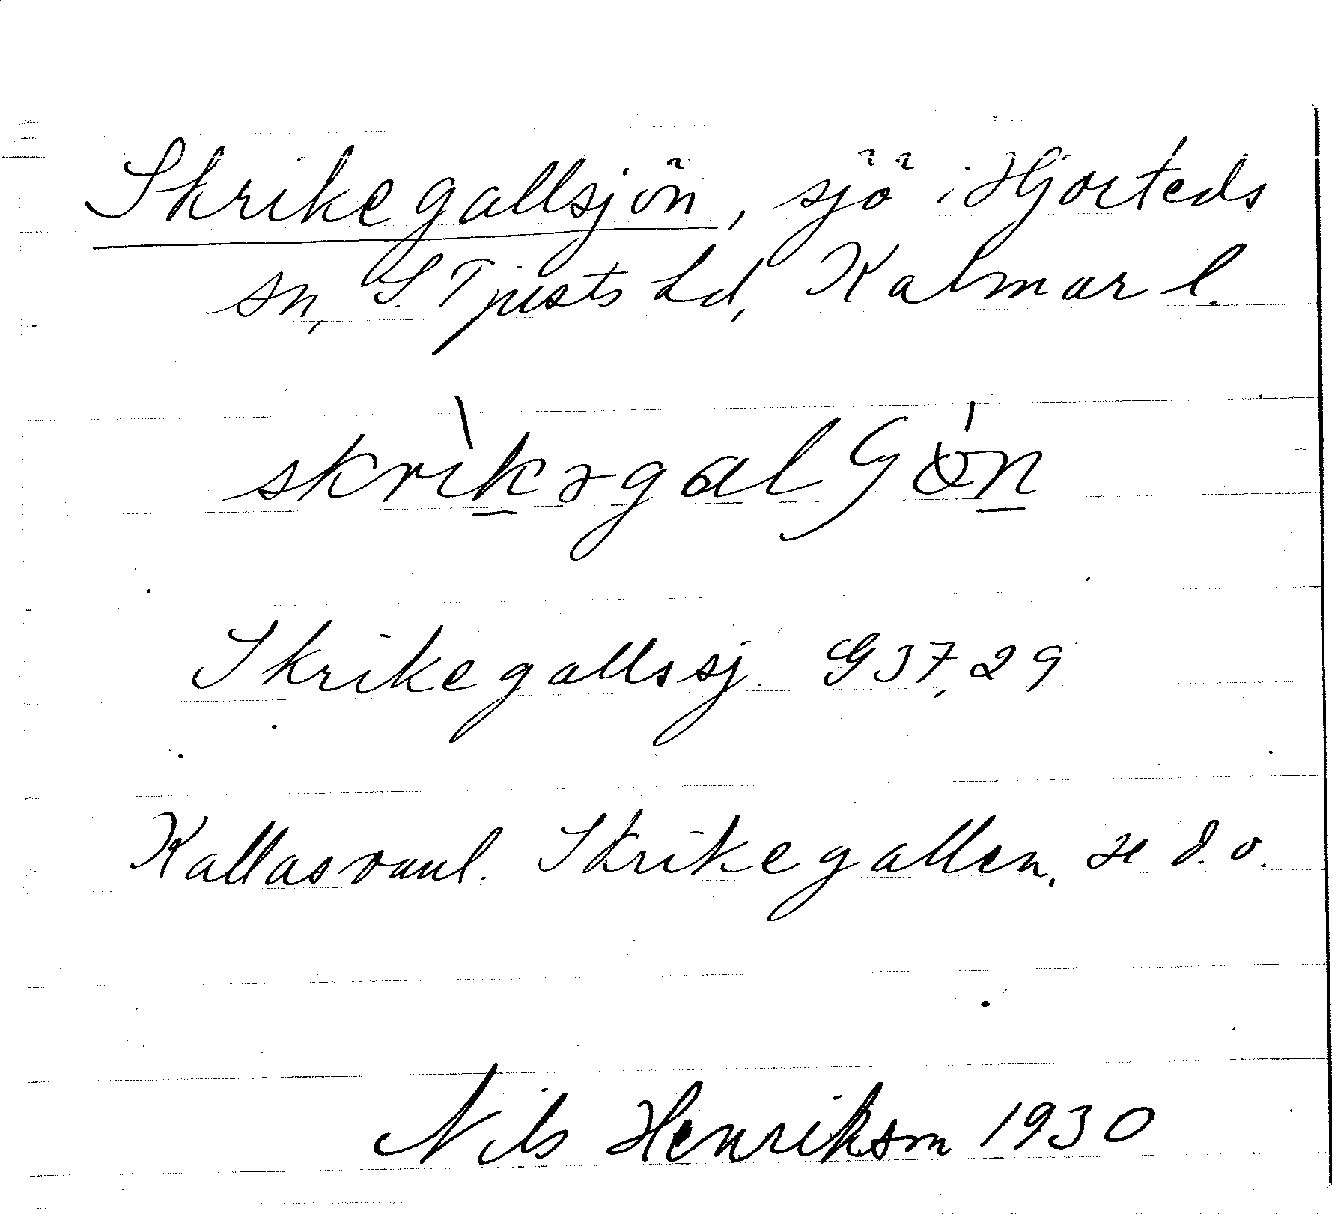 Skrikegallsjön, sjö i Hjorteds
sn, S. Tjusts hd, Kalmar l.
skrìkəgalʃön
Skrikegallssj. G 37,29
Kallas vanl. Skrikegallen, se d.o.
Nils Henriksson 1930